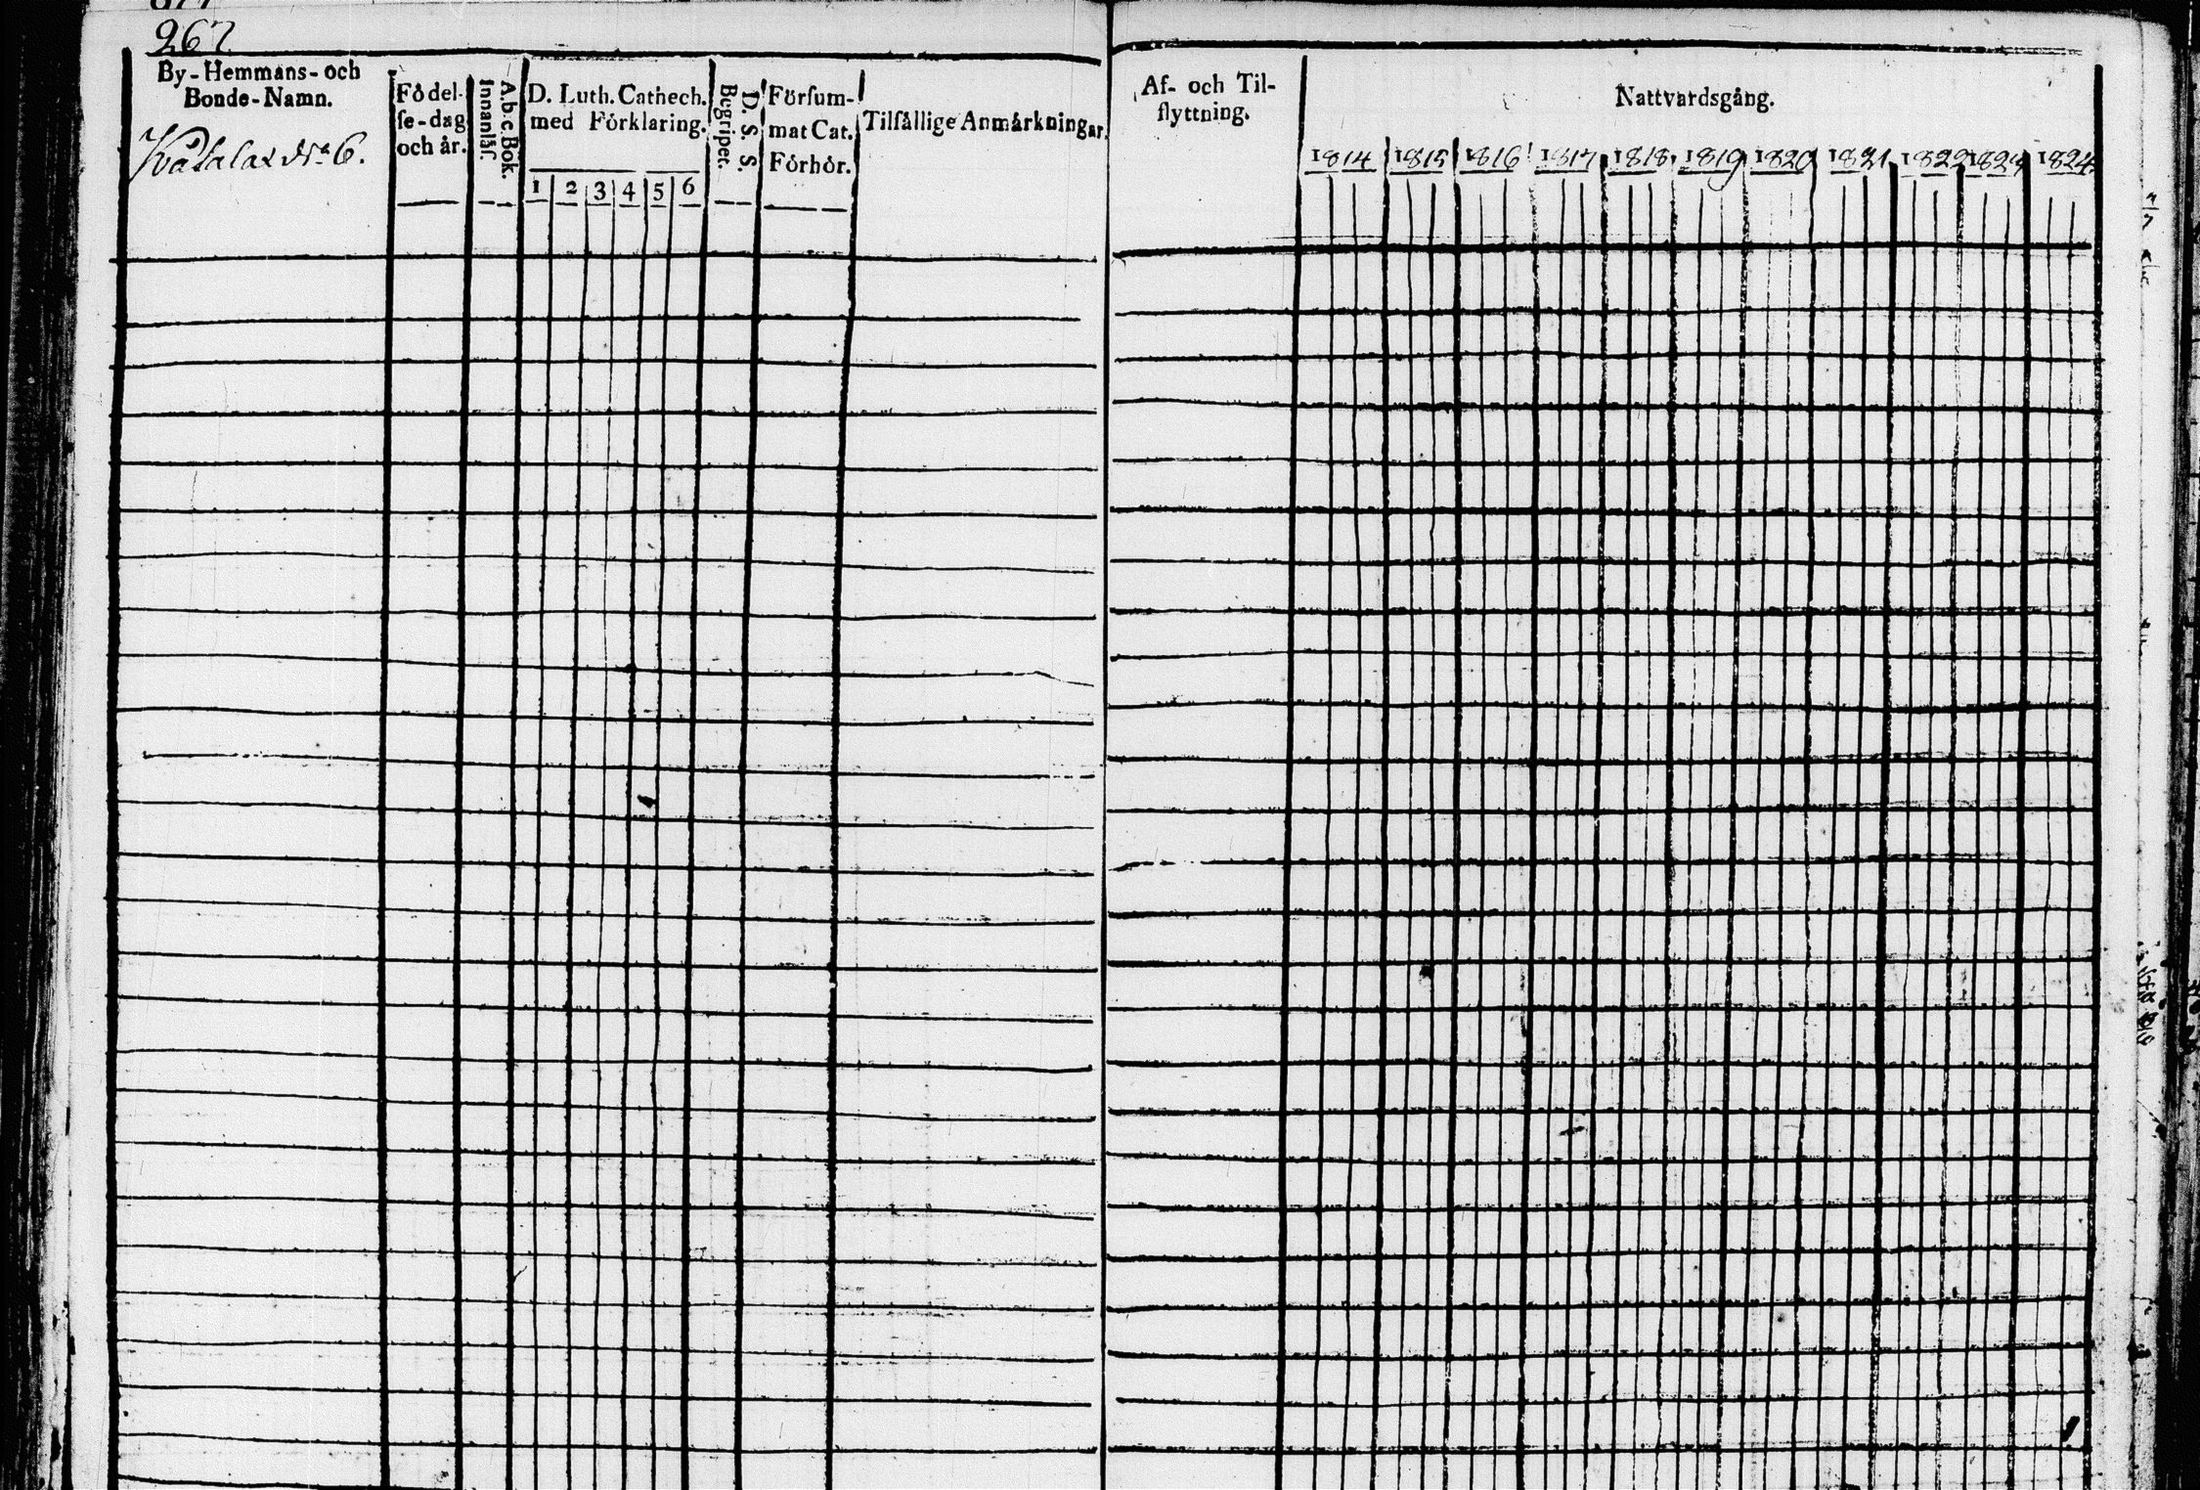 267.
By-Hemmans- och
Bonde-Namn.
Kåtalax No 6.
Födel-
se-dag
och år.
A.b.c.Bok.
Innanläs.
D. Luth. Cathech.
med Förklaring.
1 2 3 4 5 6
D. S. S.
Begriper.
Försum-
mat Cat.
Förhör.
Tilfällige Anmärkningar.
Af- och Til-
flyttning.
Nattvardsgång.
1814 1815 1816 1817 1818 1819 1820 1821 1822 1823 1824